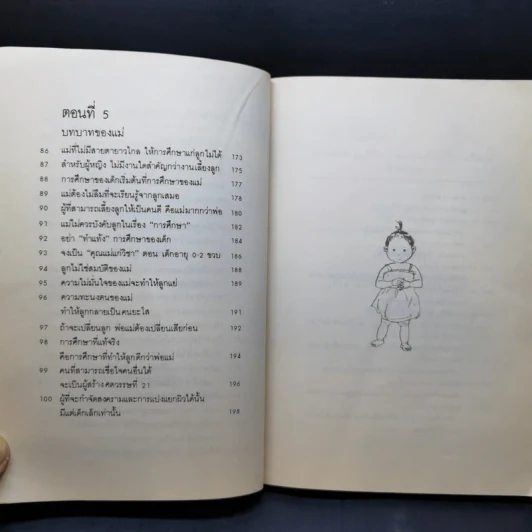 ตอนที่ 5
บทบาทของแม่
86 แม่ที่ไม่มีสายตายาวไกล ให้การศึกษาแก่ลูกไม่ได้ 173
87 สำหรับผู้หญิง ไม่มีงานใดสำคัญกว่างานเลี้ยงลูก 175
88 การศึกษาของเด็กเริ่มต้นที่การศึกษาของแม่ 177
89 แม่ต้องไม่ลืมที่จะเรียนรู้จากลูกเสมอ 178
90 ผู้ที่สามารถเลี้ยงลูกให้เป็นคนดี คือแม่มากกว่าพ่อ 180
91 แม่ไม่ควรบังคับลูกในเรื่อง “การศึกษา” 182
92 อย่า “ทำแท้ง” การศึกษาของเด็ก 184
93 จงเป็น “คุณแม่แก่วิชา” ตอน เด็กอายุ 0-2 ขวบ 186
94 ลูกไม่ใช่สมบัติของแม่ 188
95 ความไม่มั่นใจของแม่จะทำให้ลูกแย่ 189
96 ความทะนงตนของแม่
ทำให้ลูกกลายเป็นคนยะโส 191
97 ถ้าจะเปลี่ยนลูก พ่อแม่ต้องเปลี่ยนเสียก่อน 192
98 การศึกษาที่แท้จริง
คือการศึกษาที่ทำให้ลูกดีกว่าพ่อแม่ 194
99 คนที่สามารถเชื่อใจคนอื่นได้
จะเป็นผู้สร้างศตวรรษที่ 21 196
100 ผู้ที่จะกำจัดสงครามและการแบ่งแยกผิวได้นั้น
มีแต่เด็กเล็กเท่านั้น 198